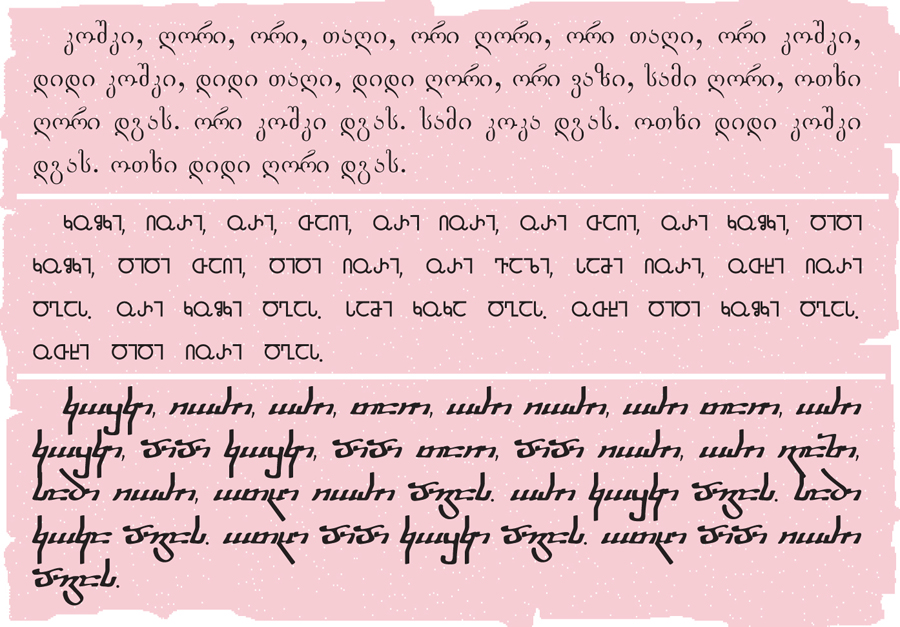 კოშკი, ღორი, ორი, თაღი, ორი ღორი, ორი თაღი, ორი კოშკი,
დიდი კოშკი, დიდი თაღი, დიდი ღორი, ორი ვაზი, სამი ღორი, ოთხი
ღორი დგას. ორი კოშკი დგას. სამი კოკა დგას. ოთხი დიდი კოშკი
დგას. ოთხი დიდი ღორი დგას.
ႩႭႸႩႨ, ႶႭႰႨ, ႭႰႨ, ႧႠႶႨ, ႭႰႨ ႶႭႰႨ, ႭႰႨ ႧႠႶႨ, ႭႰႨ ႩႭႸႩႨ, ႣႨႣႨ
ႩႭႸႩႨ, ႣႨႣႨ ႧႠႶႨ, ႣႨႣႨ ႶႭႰႨ, ႭႰႨ ႥႠႦႨ, ႱႠႫႨ ႶႭႰႨ, ႭႧႾႨ ႶႭႰႨ
ႣႢႠႱ. ႭႰႨ ႩႭႸႩႨ ႣႢႠႱ. ႱႠႫႨ ႩႭႩႠ ႣႢႠႱ. ႭႧႾႨ ႣႨႣႨ ႩႭႸႩႨ ႣႢႠႱ.
ႭႧႾႨ ႣႨႣႨ ႶႭႰႨ ႣႢႠႱ.
ⴉⴍⴘⴉⴈ, ⴖⴍⴐⴈ, ⴍⴐⴈ, ⴇⴀⴖⴈ, ⴍⴐⴈ ⴖⴍⴐⴈ, ⴍⴐⴈ ⴇⴀⴖⴈ, ⴍⴐⴈ
ⴉⴍⴘⴉⴈ, ⴃⴈⴃⴈ ⴉⴍⴘⴉⴈ, ⴃⴈⴃⴈ ⴇⴀⴖⴈ, ⴃⴈⴃⴈ ⴖⴍⴐⴈ, ⴍⴐⴈ ⴅⴀⴆⴈ,
ⴑⴀⴋⴈ ⴖⴍⴐⴈ, ⴍⴇⴞⴈ ⴖⴍⴐⴈ ⴃⴂⴀⴑ. ⴍⴐⴈ ⴉⴍⴘⴉⴈ ⴃⴂⴀⴑ. ⴑⴀⴋⴈ
ⴉⴍⴉⴀ ⴃⴂⴀⴑ. ⴍⴇⴞⴈ ⴃⴈⴃⴈ ⴉⴍⴘⴉⴈ ⴃⴂⴀⴑ. ⴍⴇⴞⴈ ⴃⴈⴃⴈ ⴖⴍⴐⴈ
ⴃⴂⴀⴑ.